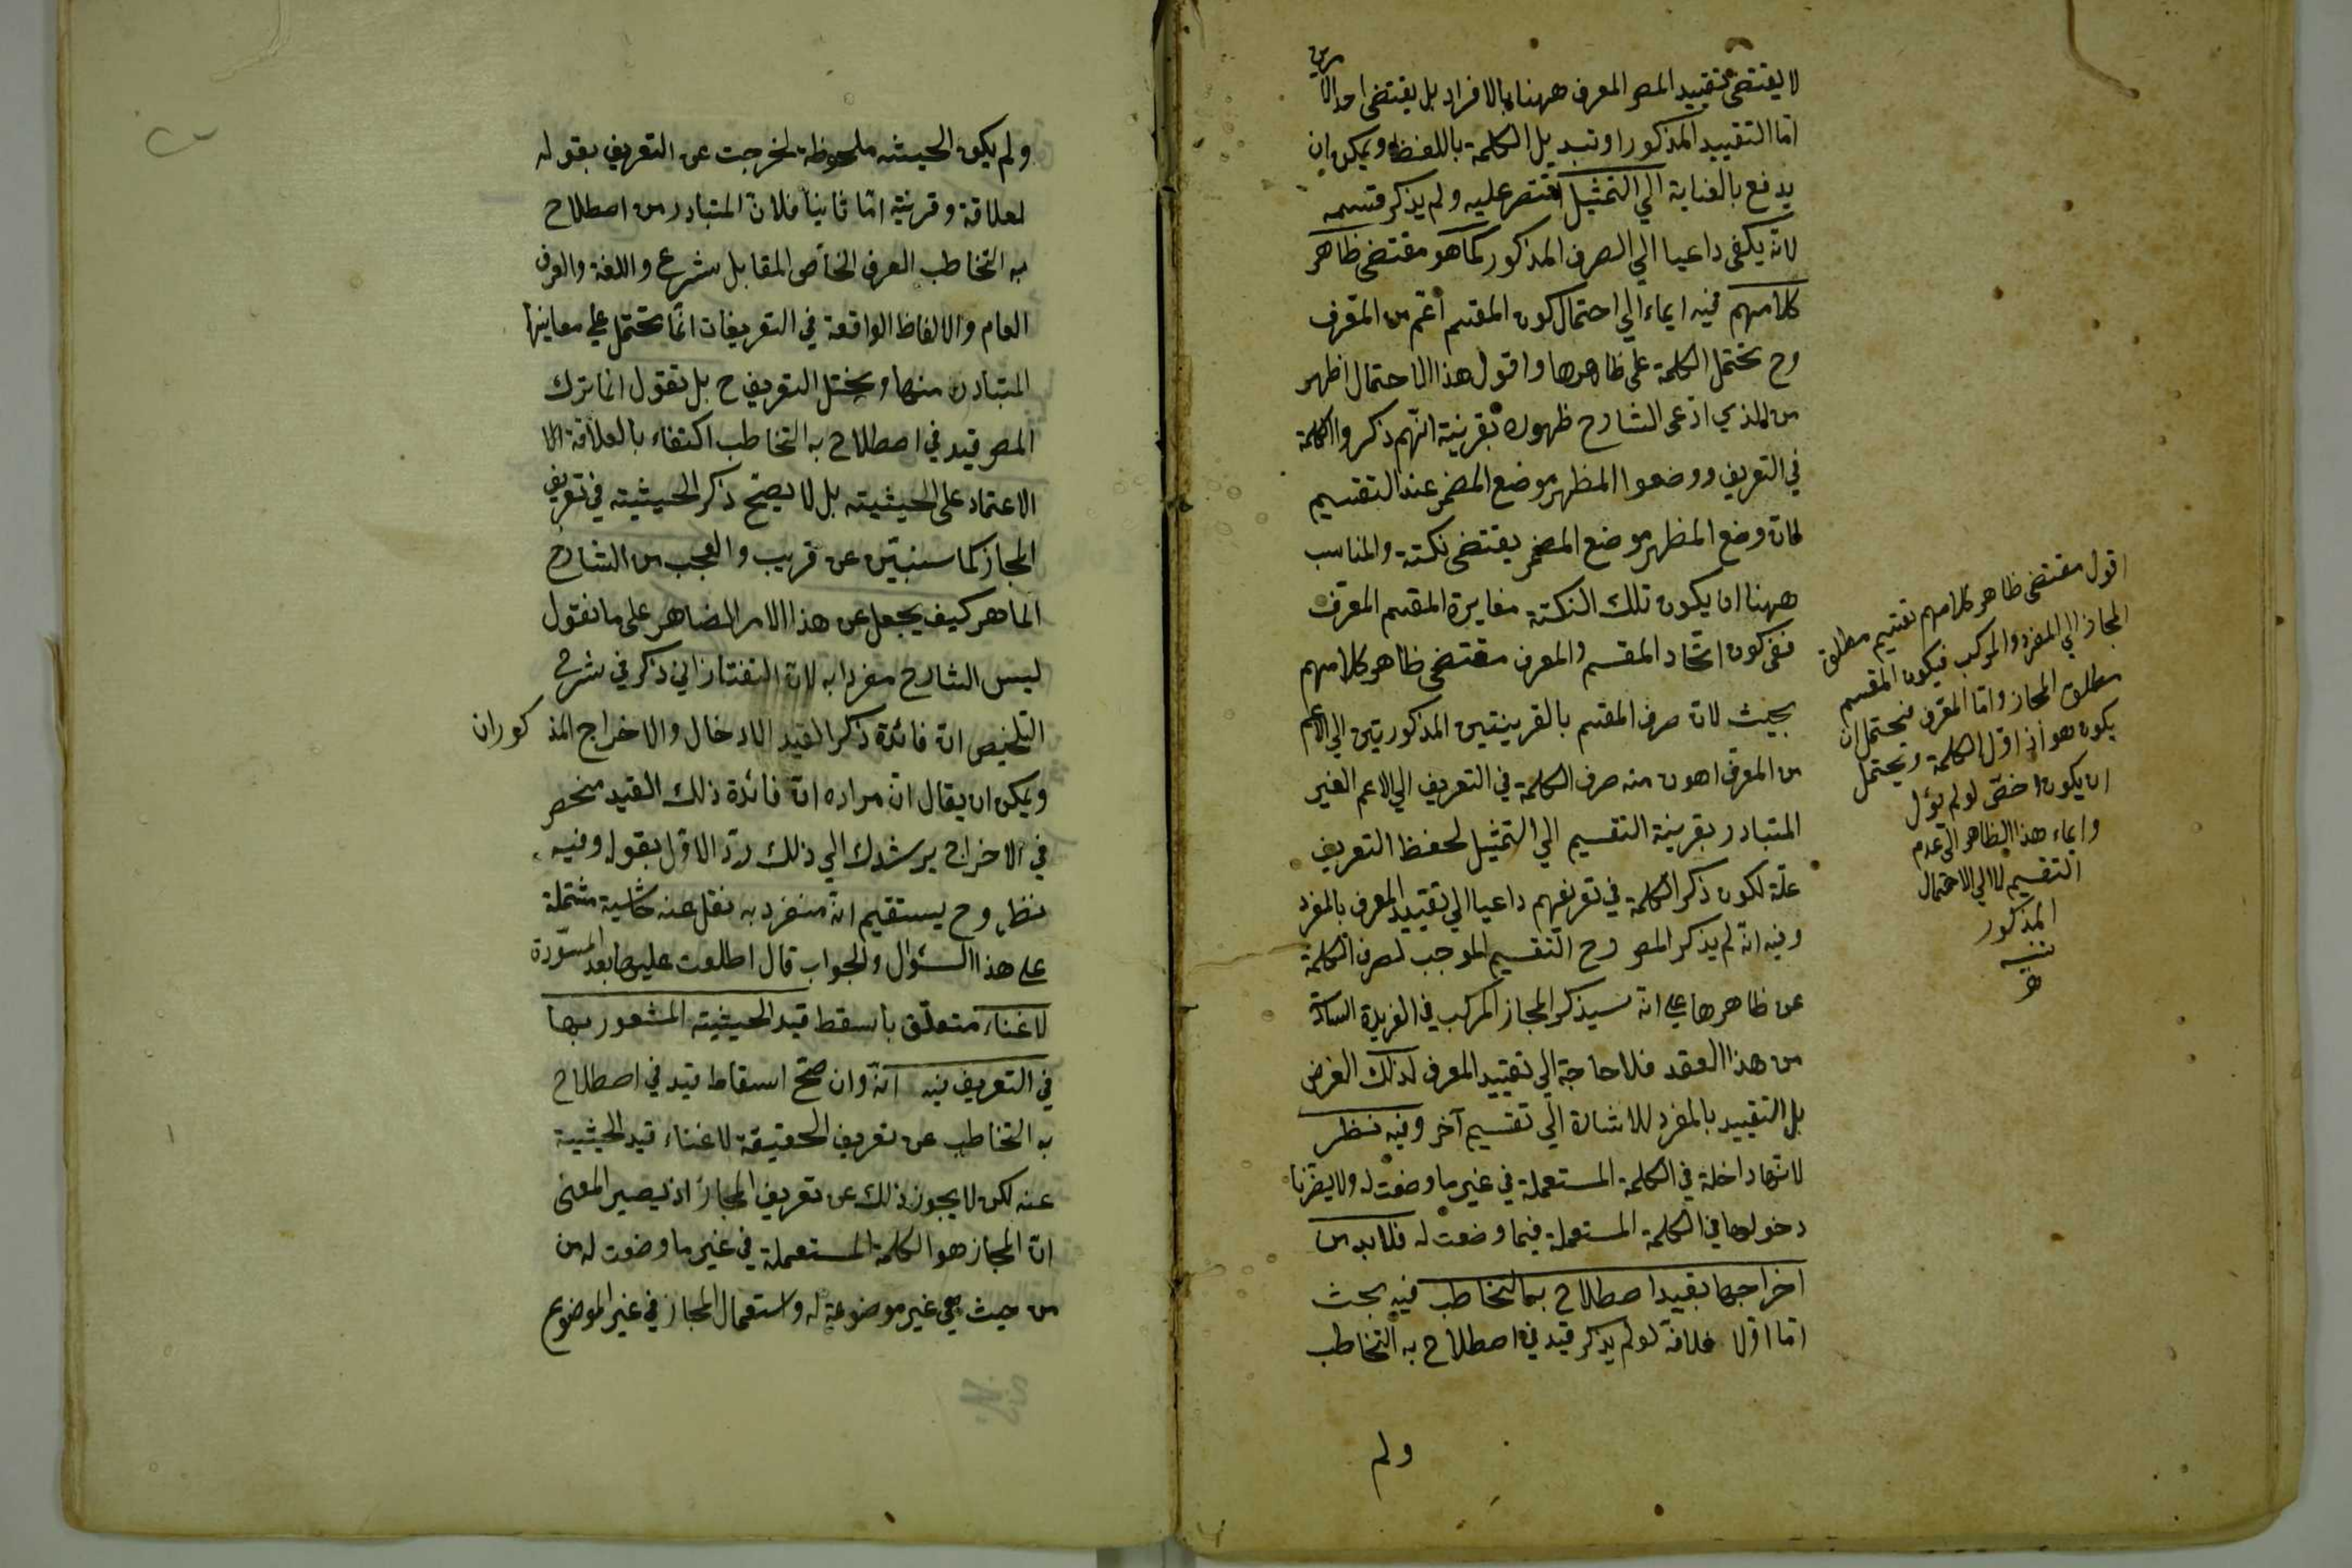 لا يقتضى تقييد المص المعرف ههنا بالافراد بل يقتضى احد الامرين
اما التقييد المذكور او تبديل الكلمة باللفظ ويمكن ان
يدفع بالعناية الي التمثيل اقتصر عليه ولم يذكر قسيمه
لانه يكفى داعيا الي الصرف المذكور كما هو مقتضى ظاهر
كلامهم فيه ايماء الي احتمال كون المقسم اعم من المعرف
وح تحتمل الكلمة على ظاهرها واقول هذا الاحتمال اظهر
من الذي ادعى الشارح ظهوره بقرينة انهم ذكروا الكلمة
في التعريف ووضعوا المظهر موضع المضمر عند التقسيم
لان وضع المظهر موضع المضمر يقتضى نكتة والمناسب
ههنا ان يكون تلك النكتة مغايرة المقسم المعرف
ففى كون اتحاد المقسم والمعرف مقتضى ظاهر كلامهم
بحيث لان صرف المقسم بالقرينتين المذكورتين الي الاعم
من المعرف اهون منه صرف الكلمة في التعريف الي الاعم الغير
المتبادر بقرينة التقسيم الي التمثيل لحفظ التعريف
علة لكون ذكر الكلمة في تعريفهم داعيا الي تقييد المعرف بالمفرد
وفيه انه لم يذكر المص وح التقسيم الموجب لصرف الكلمة
عن ظاهرها علي انه سيذكر المجاز المركب في الفريدة السادسة
من هذا العقد فلا حاجة الي تقييد المعرف لذلك الغرض
بل التقييد بالمفرد للاشارة الي تقسيم آخر وفيه نظر
لانها داخلة في الكلمة المستعملة في غير ما وضعت له ولا يضرنا
دخولها في الكلمة المستعملة فيما وضعت له فلا بد من
اخراجها بقيد اصطلاح به التخاطب فيه بحث
اما اولا فلانه لو لم يذكر قيد في اصطلاح به التخاطب
ولم
اقول مقتضى ظاهر كلامهم تقسيم مطلق
المجاز الي المفرد والمركب فيكون المقسم
مطلق المجاز واما المعرف فيحتمل ان
يكون هو اذ اول الكلمة ويحتمل
ان يكون اخص لو لم يؤل
وايماء هذا الظاهر الي عدم
التقسيم لا الي الاحتمال
المذكور
ولم يكن الحيثيه ملحوظة لخرجت عن التعريف بقوله
لعلاقة وقرينة اما ثانيا فلان المتبادر من اصطلاح
به التخاطب العرف الخاص المقابل شرع واللغة والعرف
العام والالفاظ الواقعة في التعريفات انما تحتمل علي معاينها
المتبادرة منها ويختل التعريف ح بل نقول انما ترك
المص قيد في اصطلاح به التخاطب اكتفاء بالعلاقة لا
الاعتماد على الحيثيته بل لا يصح ذكر الحيثيته في تعريف
المجاز كما سنبين عن قريب والعجب من الشارح
الماهر كيف يجعل عن هذا الامر الضاهر على ما نقول
ليس الشارح مفردا به لان التفتازاني ذكر في شرح
التلخيص ان فائدة ذكر القيد الادخال والاخراج المذكوران
ويمكن ان يقال ان مراده ان فائدة ذلك القيد منحصر
في الاخراج يرشدك الي ذلك رد الاول بقوله وفيه
نظر وح يستقيم انه منفرد به نقل عنه حاشية مشتملة
علي هذا السؤال والجواب قال اطلعت عليها بعد المسودة
لاغناء متعلق باسقط قيد الحيثيته المشعور بها
في التعريف فيه انه وان صح اسقاط قيد في اصطلاح
به التخاطب عن تعريف الحقيقة لاغناء قيد الحيثية
عنه لكن لا يجوز ذلك عن تعريف المجاز اذ يصير المعنى
ان المجاز هو الكلمة المستعملة في غير ما وضعت له من
من حيث هي غير موضوعة له واستعمال المجاز في غير الموضوع